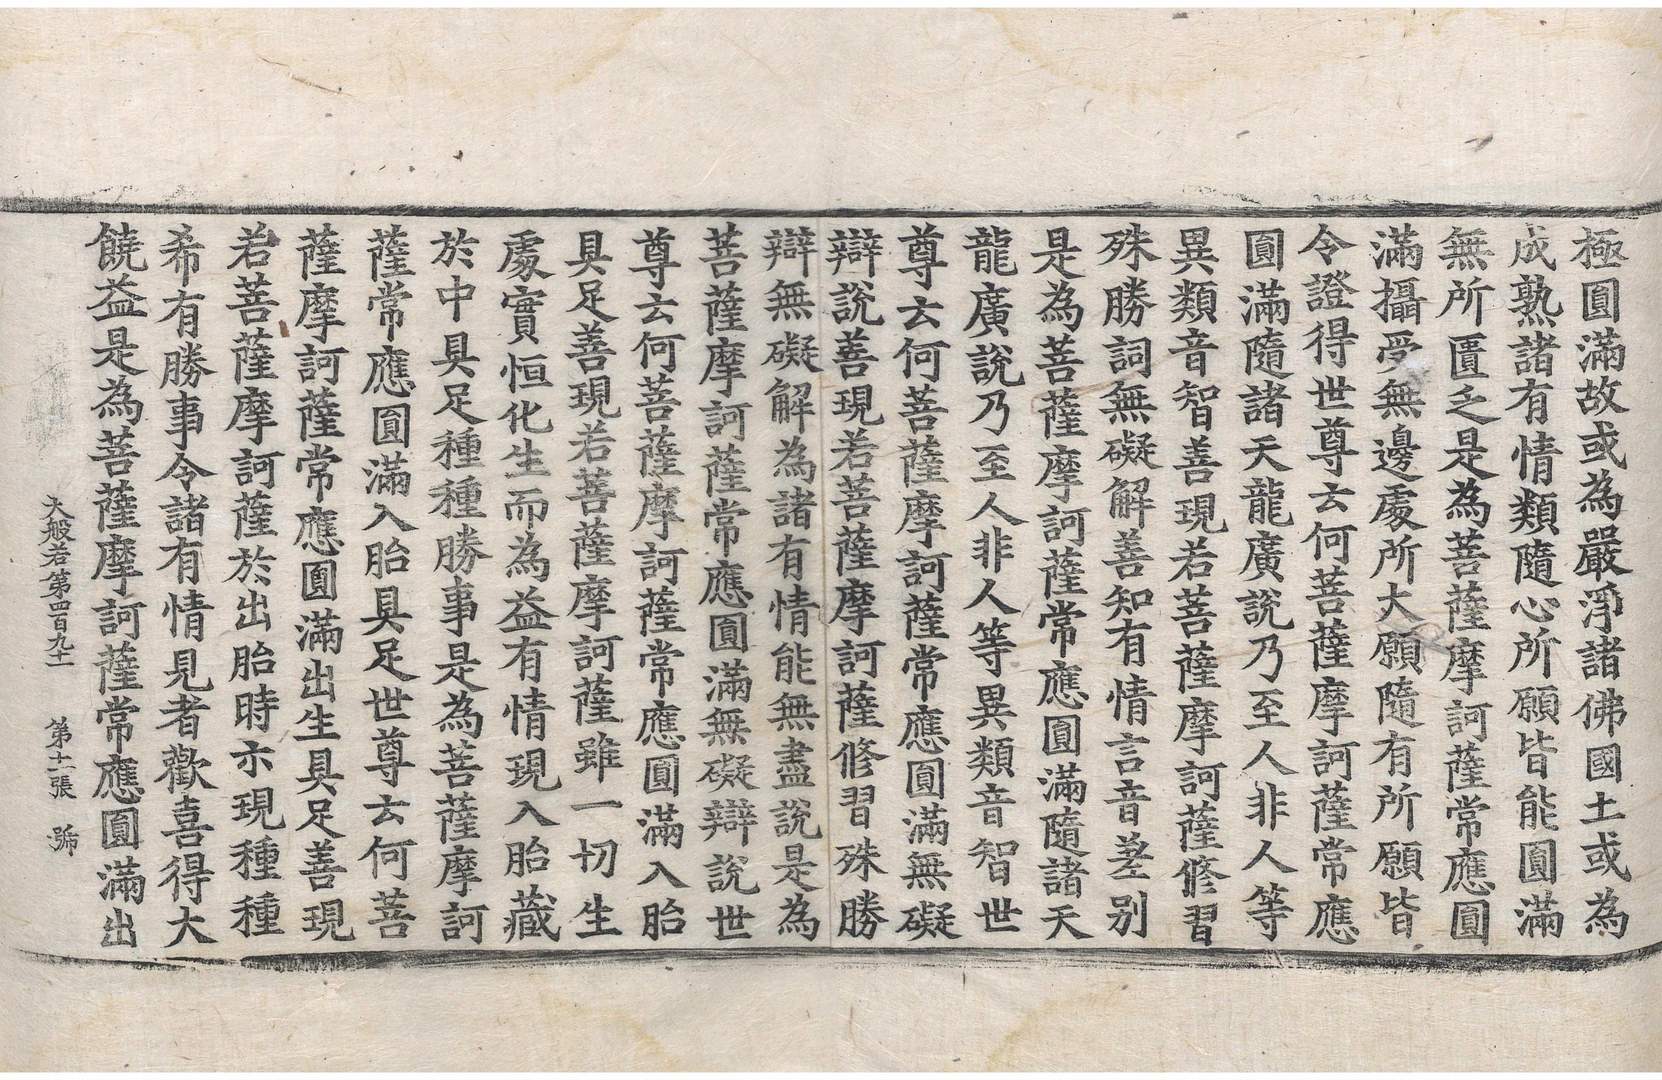 極圓滿故或為嚴淨諸佛國土或為
成熟諸有情類隨心所願皆能圓滿
無所匱乏是為菩薩摩訶薩常應圓
滿攝受無邊處所大願隨有所願皆
令證得世尊云何菩薩摩訶薩常應
圓滿隨諸天龍廣說乃至人非人等
異類音智善現若菩薩摩訶薩修習
殊勝詞無礙解善知有情言音差別
是為菩薩摩訶薩常應圓滿隨諸天
龍廣說乃至人非人等異類音智世
尊云何菩薩摩訶薩常應圓滿無礙
辯說善現若菩薩摩訶薩修習殊勝
辯無礙解為諸有情能無盡說是為
菩薩摩訶薩常應圓滿無礙辯說世
尊云何菩薩摩訶薩常應圓滿入胎
具足善現若菩薩摩訶薩雖一切生
處實恒化生而為益有情現入胎藏
於中具足種種勝事是為菩薩摩訶
薩常應圓滿入胎具足世尊云何菩
薩摩訶薩常應圓滿出生具足善現
若菩薩摩訶薩於出胎時示現種種
希有勝事令諸有情見者歡喜得大
饒益是為菩薩摩訶薩常應圓滿出
大般若第四百九十一 第十一張 號